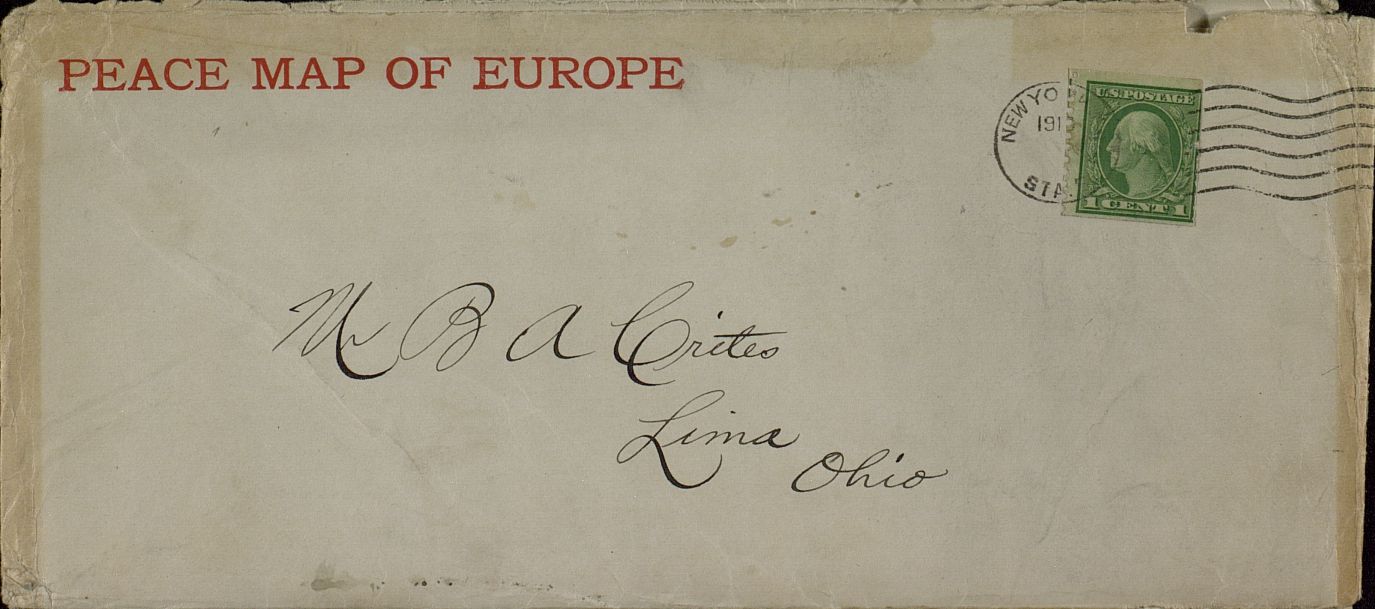 PEACE MAP OF EUROPE
NEW YO
191
STA
U.S. POSTAGE
1 CENT 1
Mr B A Crites
Lima
Ohio